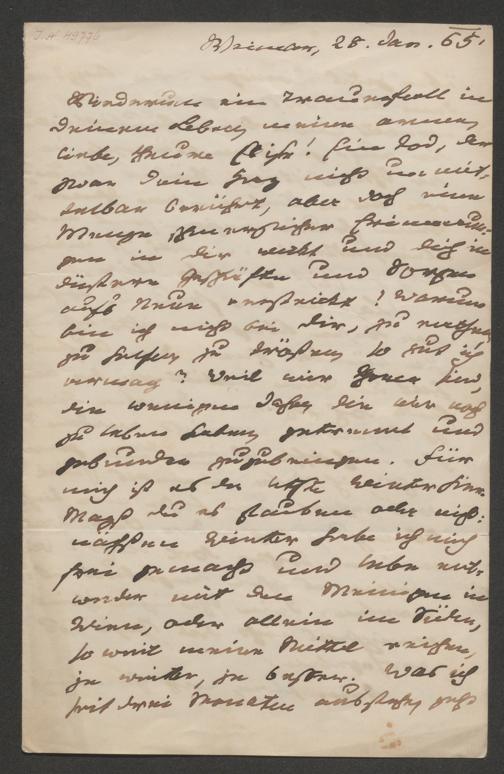 J.N. 49776
Weimar, 28. Jan. 65.
Wiederum ein Trauerfall in
Deinem Leben meine arme,
liebe, theure ! Ein Tod, der
zwar Dein Herz nicht unmit-
telbar berührt, aber doch eine
Menge schmerzlicher Erinnerun-
gen in dir weckt und dich in
düstere Geschäfte und Sorgen
aufs Neue verstrickt! Warum
bin ich nicht bei dir, zu rathen,
zu helfen, zu trösten, so gut ich
vermag? Weil wir sind,
die wenigen Jahre die wir noch
zu leben haben, getrennt und
gebunden zuzubringen. Für
mich ist es der letzte Winter hier.
Magst du es glauben oder nicht:
nächsten Winter habe ich mich
frei gemacht und lebe ent-
weder mit den Meinigen in
Wien, oder allein im Süden,
so weit meine Mittel reichen,
je weiter, je besser. Was ich
seit drei Monaten ausstehe, geht